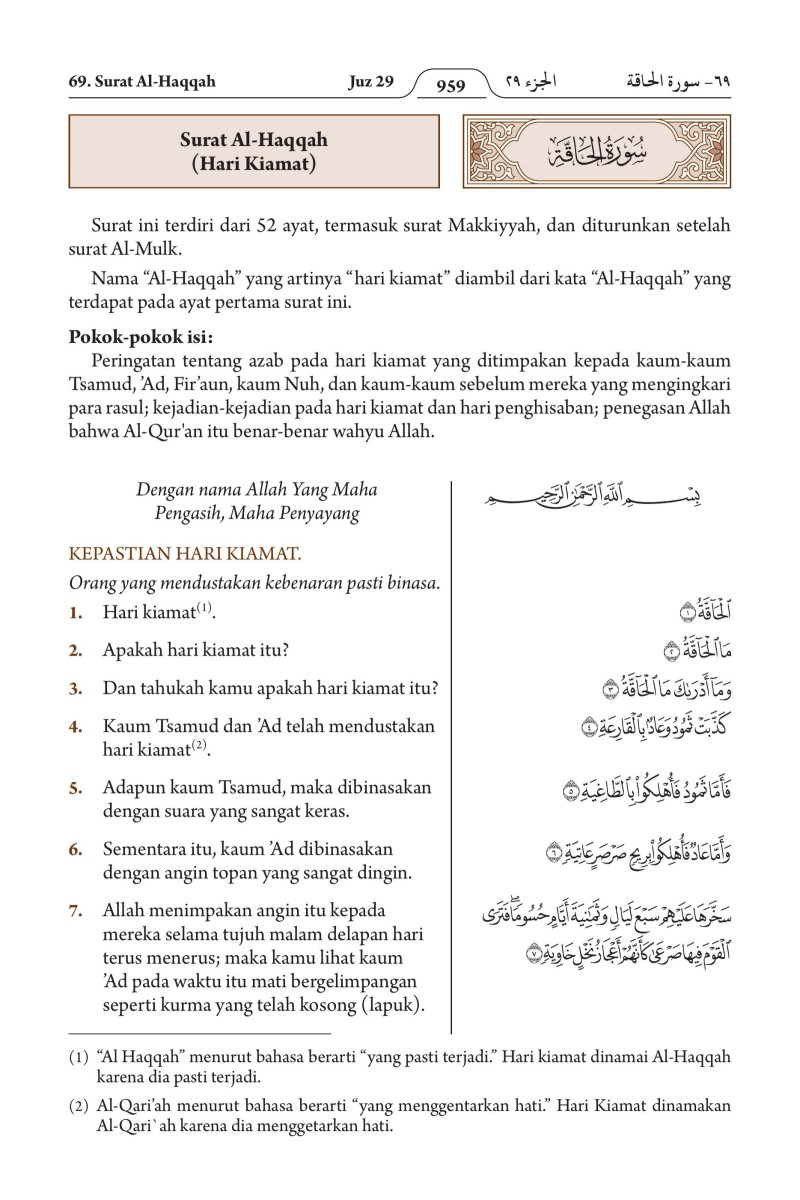 69. Surat Al-Haqqah Juz 29 959 الجزء ٢٩ ٦٩- سورة الحاقة
Surat Al-Haqqah
(Hari Kiamat)
سُورَةُ الحَاقَّةِ
Surat ini terdiri dari 52 ayat, termasuk surat Makkiyyah, dan diturunkan setelah
surat Al-Mulk.
Nama “Al-Haqqah” yang artinya “hari kiamat” diambil dari kata “Al-Haqqah” yang
terdapat pada ayat pertama surat ini.
Pokok-pokok isi:
Peringatan tentang azab pada hari kiamat yang ditimpakan kepada kaum-kaum
Tsamud, ’Ad, Fir’aun, kaum Nuh, dan kaum-kaum sebelum mereka yang mengingkari
para rasul; kejadian-kejadian pada hari kiamat dan hari penghisaban; penegasan Allah
bahwa Al-Qur'an itu benar-benar wahyu Allah.
Dengan nama Allah Yang Maha
Pengasih, Maha Penyayang
KEPASTIAN HARI KIAMAT.
Orang yang mendustakan kebenaran pasti binasa.
1. Hari kiamat(1).
2. Apakah hari kiamat itu?
3. Dan tahukah kamu apakah hari kiamat itu?
4. Kaum Tsamud dan ’Ad telah mendustakan
hari kiamat(2).
5. Adapun kaum Tsamud, maka dibinasakan
dengan suara yang sangat keras.
6. Sementara itu, kaum ’Ad dibinasakan
dengan angin topan yang sangat dingin.
7. Allah menimpakan angin itu kepada
mereka selama tujuh malam delapan hari
terus menerus; maka kamu lihat kaum
’Ad pada waktu itu mati bergelimpangan
seperti kurma yang telah kosong (lapuk).
بِسْمِ ٱللَّهِ ٱلرَّحْمَٰنِ ٱلرَّحِيمِ
ٱلْحَآقَّةُ ١
مَا ٱلْحَآقَّةُ ٢
وَمَآ أَدْرَىٰكَ مَا ٱلْحَآقَّةُ ٣
كَذَّبَتْ ثَمُودُ وَعَادٌۢ بِٱلْقَارِعَةِ ٤
فَأَمَّا ثَمُودُ فَأُهْلِكُوا۟ بِٱلطَّاغِيَةِ ٥
وَأَمَّا عَادٌ فَأُهْلِكُوا۟ بِرِيحٍ صَرْصَرٍ عَاتِيَةٍ ٦
سَخَّرَهَا عَلَيْهِمْ سَبْعَ لَيَالٍ وَثَمَٰنِيَةَ أَيَّامٍ حُسُومًا ۖ فَتَرَى
ٱلْقَوْمَ فِيهَا صَرْعَىٰ كَأَنَّهُمْ أَعْجَازُ نَخْلٍ خَاوِيَةٍ ٧
(1) “Al Haqqah” menurut bahasa berarti “yang pasti terjadi.” Hari kiamat dinamai Al-Haqqah
karena dia pasti terjadi.
(2) Al-Qari’ah menurut bahasa berarti “yang menggentarkan hati.” Hari Kiamat dinamakan
Al-Qari`ah karena dia menggetarkan hati.